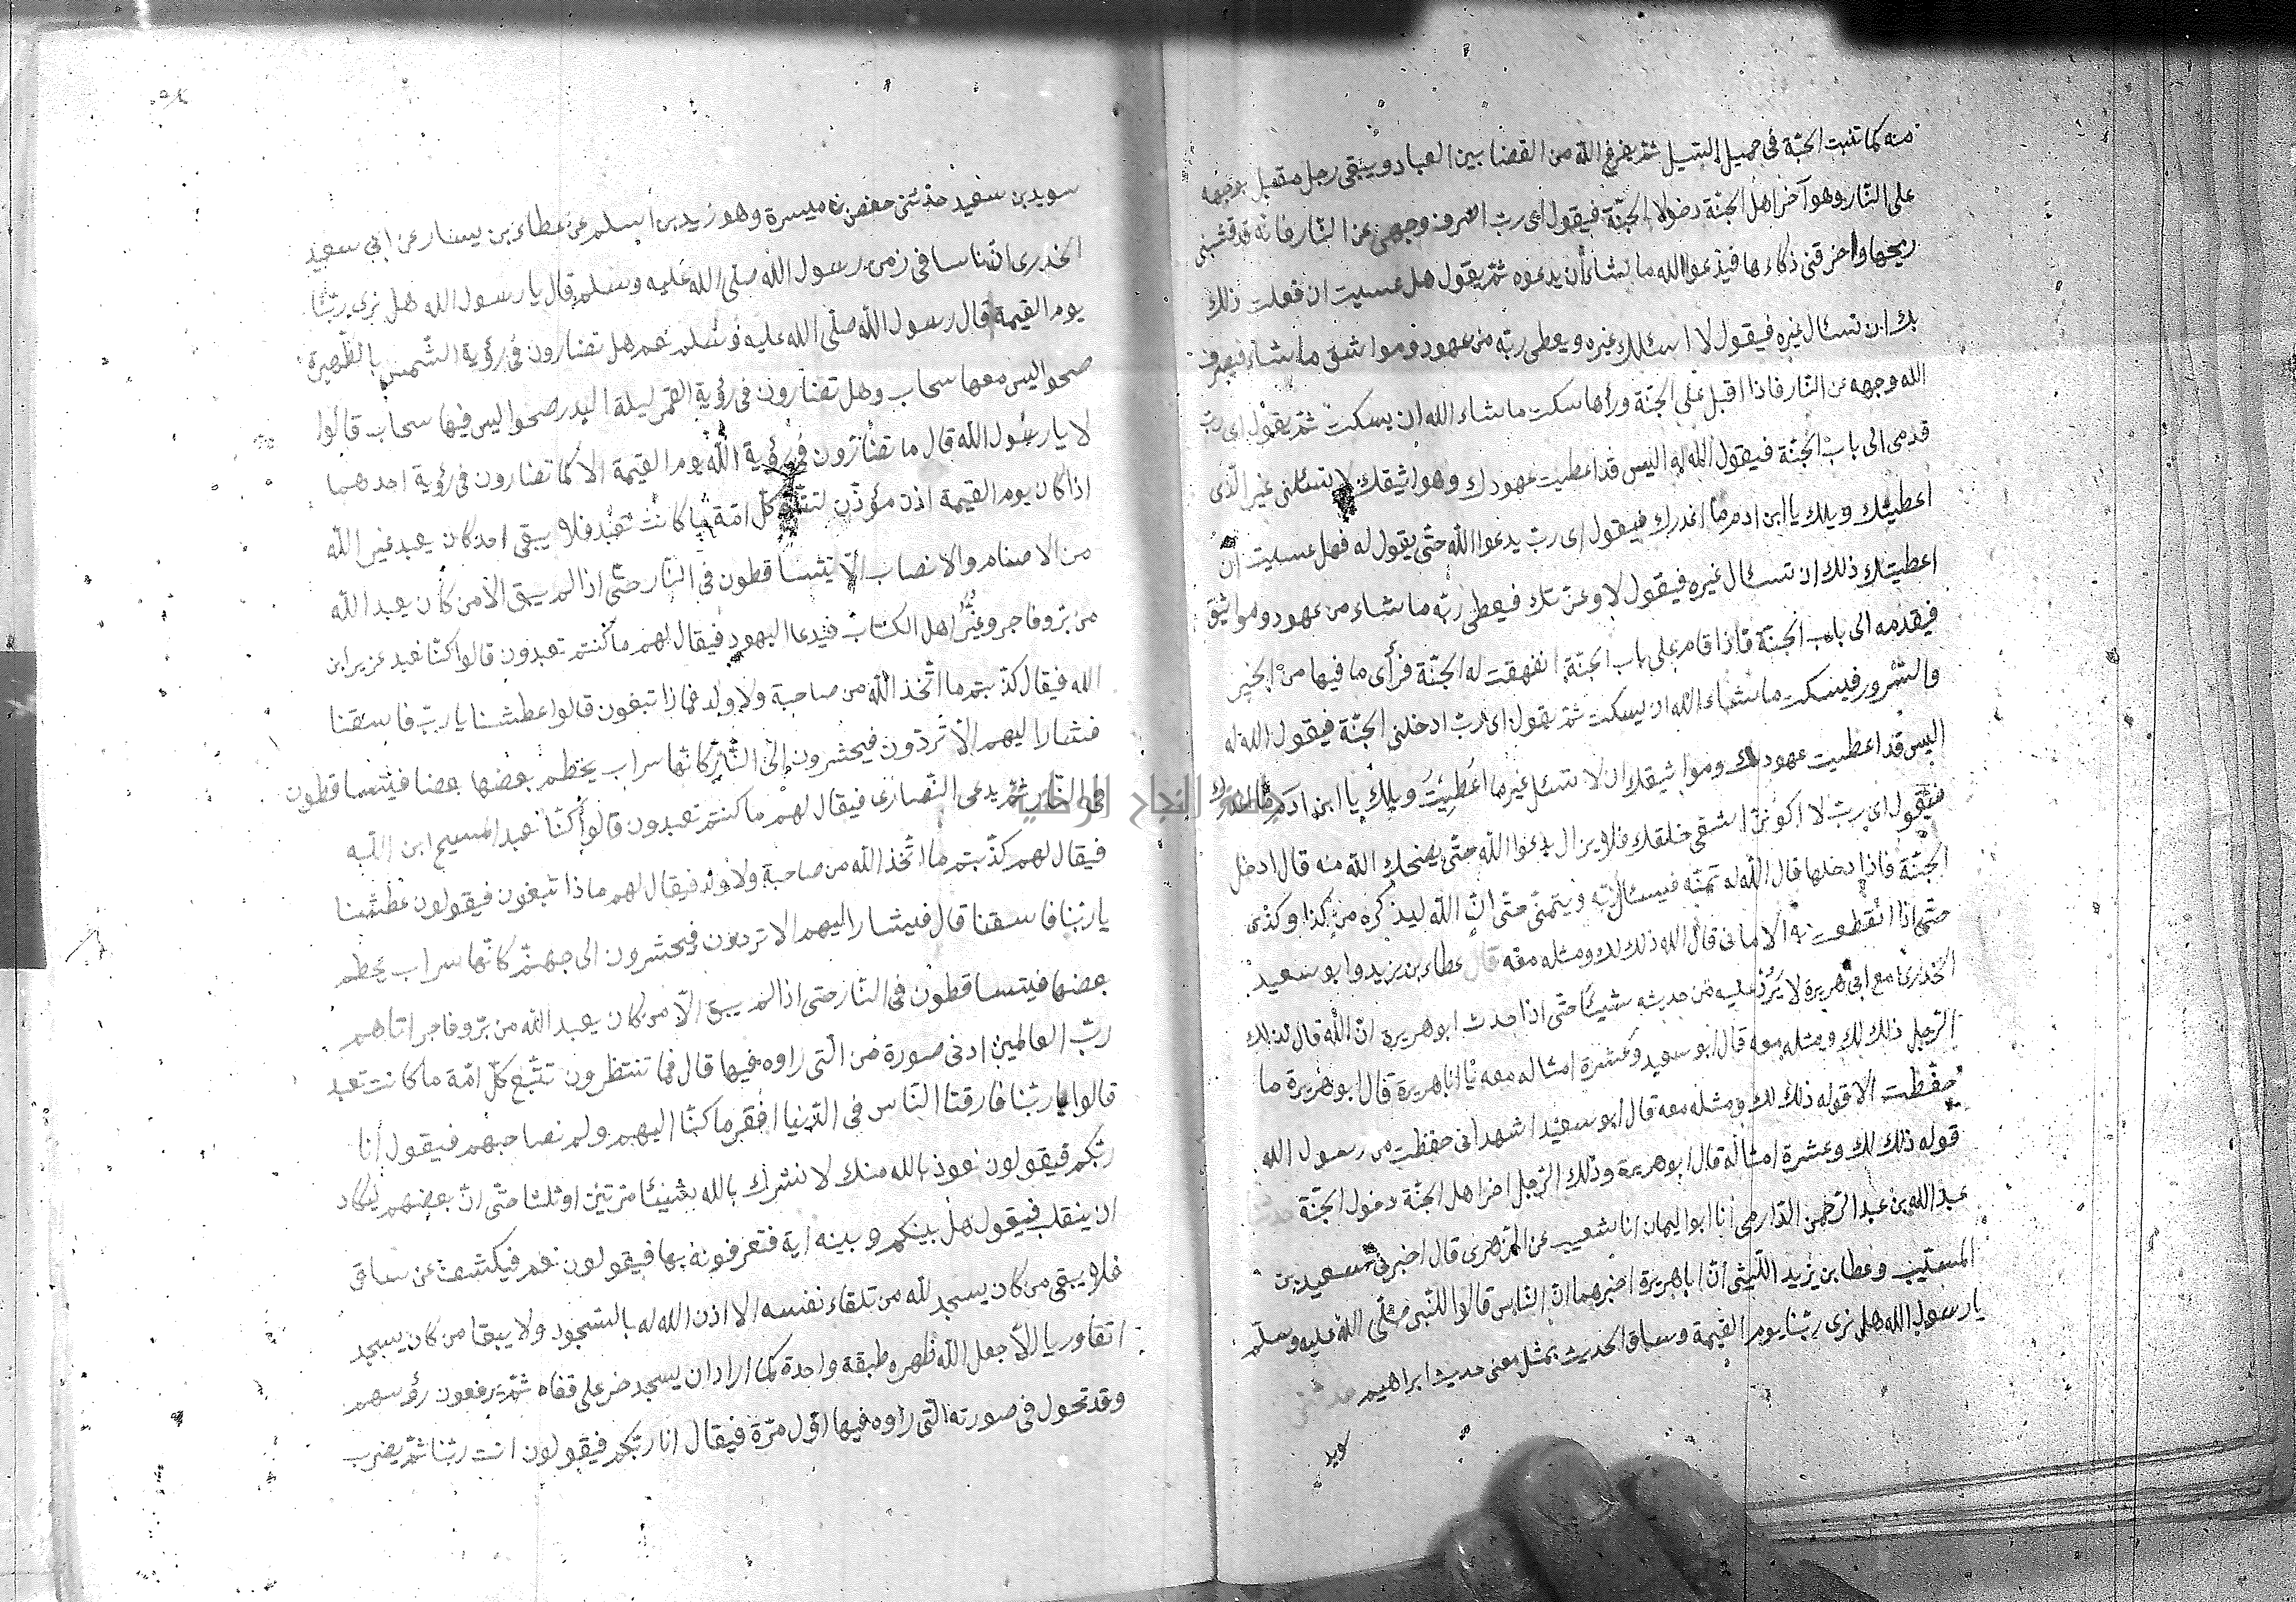 منه كما تنبت الحبة في حميل السيل ثم يفرغ الله من القضا بين العباد ويبقى رجل مقبل بوجهه
على النار وهو آخر اهل الجنة دخولا الجنة فيقول اى رب اصرف وجهى عن النار فانه قد قشبنى
ريحها واحرقنى ذكاءها فيدعوا الله ما شاء أن يدعوه ثم يقول هل عسيت ان فعلت ذلك
بك ان تسئال غيره فيقول لا اسئلك غيره ويعطى ربه من عهود ومواثيق ما شاء فيصرف
الله وجهه عن النار فاذا اقبل على الجنة ورأها سكت ما شاء الله ان يسكت ثم يقول اى رب
قدمى الى باب الجنة فيقول الله له اليس قد اعطيت عهودك ومواثيقك لا تسئلنى غير الذى
اعطيتك ويلك يا ابن ادم ما اغدرك فيقول اى رب يدعوا الله حتى يقول له فهل عسيت ان
اعطيتك ذلك ان تسئال غيره فيقول لا وعزتك فيعطى ربه ما شاء من عهود ومواثيق
فيقدمه الى باب الجنة فاذا قام على باب الجنة انفهقت له الجنة فرأى ما فيها من الخير
والسرور فيسكت ما شاء الله ان يسكت ثم يقول اى رب ادخلنى الجنة فيقول الله له
اليس قد اعطيت عهودك ومواثيقك ان لا تسئل غير ما اعطيت ويلك يا ابن ادم ما اغدرك
فيقول اى رب لا اكونن اشقى خلقك فلا يزال يدعوا الله حتى يضحك الله منه قال ادخل
الجنة فاذا دخلها قال الله له تمنه فيسئال ربه ويتمنى حتى ان الله ليذكره من كذا وكذى
حتى اذا انقطعت به الامانى قال الله ذلك لك ومثله معه قال عطاء بن يزيد وابو سعيد
الخدرى مع ابى هريرة لا يرد عليه من حديثه شيئا حتى اذا حدث ابو هريرة ان الله قال لذلك
الرجل ذلك لك ومثله معه قال ابو سعيد وعشرة امثاله معه يا ابا هريرة قال ابو هريرة ما
حفظت الا قوله ذلك لك ومثله معه قال ابو سعيد اشهد انى حفظت من رسول الله
قوله ذلك لك وعشرة امثاله قال ابو هريرة وذلك الرجل اخر اهل الجنة دخول الجنة
عبد الله بن عبد الرحمن الدارمى انا ابو اليمان انا شعيب عن الزهرى قال اخبرنى سعيد بن
المسيب وعطا بن يزيد الليثى ان ابا هريرة اخبرهما ان الناس قالوا للنبى صلى الله عليه وسلم
يا رسول الله هل نرى ربنا يوم القيمة وساق الحديث بمثل معنى حديث ابراهيم حدثنى
سويد
سويد بن سعيد حدثنى حفص بن ميسرة وهو زيد بن اسلم عن عطاء بن يسار عن ابى سعيد
الخدرى ان ناسا فى زمن رسول الله صلى الله عليه وسلم قال يا رسول الله هل نرى ربنا
يوم القيمة قال رسول الله صلى الله عليه وسلم نعم هل تضارون فى رؤية الشمس بالظهيرة
صحوا ليس معها سحاب وهل تضارون فى رؤية القمر ليلة البدر صحوا ليس فيها سحاب قالوا
لا يا رسول الله قال ما تضارون فى رؤية الله يوم القيمة الا كما تضارون فى رؤية احدهما
اذا كان يوم القيمة اذن مؤذن لتتبع كل امة ما كانت تعبد فلا يبقى احد كان يعبد غير الله
من الاصنام والانصاب الا يتساقطون فى النار حتى اذا لم يبق الا من كان يعبد الله
من بر وفاجر وغبر اهل الكتاب فيدعا اليهود فيقال لهم ما كنتم تعبدون قالوا كنا نعبد عزير ابن
الله فيقال كذبتم ما اتخذ الله من صاحبة ولا ولد فماذا تبغون قالوا عطشنا يا رب فاسقنا
فيشار اليهم الا تردون فيحشرون الى النار كانها سراب يحطم بعضها بعضا فيتساقطون
فى النار ثم يدعى النصارى فيقال لهم ما كنتم تعبدون قالوا كنا نعبد المسيح ابن الله
فيقال لهم كذبتم ما اتخذ الله من صاحبة ولا ولد فيقال لهم ماذا تبغون فيقولون عطشنا
يا ربنا فاسقنا قال فيشار اليهم الا تردون فيحشرون الى جهنم كانها سراب يحطم
بعضها فيتساقطون فى النار حتى اذا لم يبق الا من كان يعبد الله من بر وفاجر اتاهم
رب العالمين ادنى صورة من التى راوه فيها قال فما تنتظرون تتبع كل امة ما كانت تعبد
قالوا يا ربنا فارقنا الناس فى الدنيا افقر ما كنا اليهم ولم نصاحبهم فيقول انا
ربكم فيقولون نعوذ بالله منك لا نشرك بالله شيئا مرتين او ثلثا حتى ان بعضهم ليكاد
ان ينقلب فيقول هل بينكم وبينه اية فتعرفونه بها فيقولون نعم فيكشف عن ساق
فلا يبقى من كان يسجد لله من تلقاء نفسه الا اذن الله له بالسجود ولا يبقا من كان يسجد
اتقا وريا الا جعل الله ظهره طبقة واحدة كلما اراد ان يسجد خر على قفاه ثم يرفعون رؤسهم
وقد تحول فى صورته التى راوه فيها اول مرة فيقال انا ربكم فيقولون انت ربنا ثم يضرب